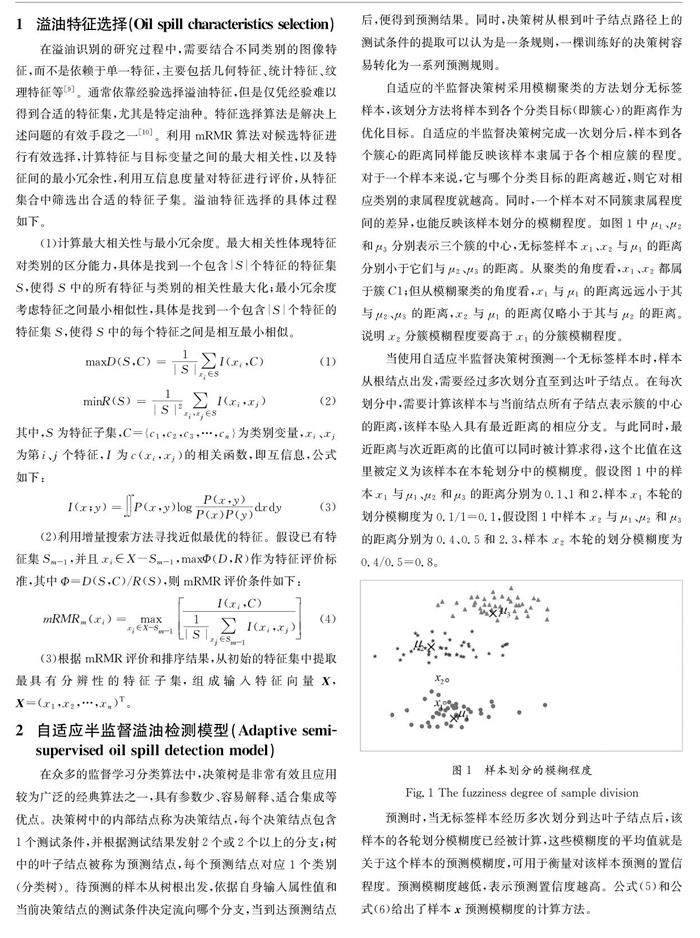 1 溢油特征选择(Oil spill characteristics selection)
在溢油识别的研究过程中,需要结合不同类别的图像特
征,而不是依赖于单一特征,主要包括几何特征、统计特征、纹
理特征等[9]。通常依靠经验选择溢油特征,但是仅凭经验难以
得到合适的特征集,尤其是特定油种。特征选择算法是解决上
述问题的有效手段之一[10]。利用 mRMR 算法对候选特征进
行有效选择,计算特征与目标变量之间的最大相关性,以及特
征间的最小冗余性,利用互信息度量对特征进行评价,从特征
集合中筛选出合适的特征子集。溢油特征选择的具体过程
如下。
(1)计算最大相关性与最小冗余度。最大相关性体现特征
对类别的区分能力,具体是找到一个包含|S|个特征的特征集
S,使得 S 中的所有特征与类别的相关性最大化;最小冗余度
考虑特征之间最小相似性,具体是找到一个包含|S|个特征的
特征集 S,使得 S 中的每个特征之间是相互最小相似。
maxD(S,C) = 1/|S| ∑_{xi∈S} I(xi,C) (1)
minR(S) = 1/|S|² ∑_{xi,xj∈S} I(xi,xj) (2)
其中,S 为特征子集,C={c1,c2,c3,…,cn}为类别变量,xi、xj
为第 i、j 个特征,I 为 c(xi,xj)的相关函数,即互信息,公式
如下:
I(x;y) = ∬P(x,y)log P(x,y)/P(x)P(y) dxdy (3)
(2)利用增量搜索方法寻找近似最优的特征。假设已有特
征集 Sm−1,并且 xi∈X−Sm−1,maxΦ(D,R)作为特征评价标
准,其中 Φ=D(S,C)/R(S),则 mRMR 评价条件如下:
mRMRm(xi) = max_{xi∈X−Sm−1} [I(xi,C) / (1/|S| ∑_{xj∈Sm−1} I(xi,xj))] (4)
(3)根据 mRMR 评价和排序结果,从初始的特征集中提取
最具有分辨性的特征子集,组成输入特征向量 X,
X=(x1,x2,…,xn)T。
2 自适应半监督溢油检测模型(Adaptive semi-
supervised oil spill detection model)
在众多的监督学习分类算法中,决策树是非常有效且应用
较为广泛的经典算法之一,具有参数少、容易解释、适合集成等
优点。决策树中的内部结点称为决策结点,每个决策结点包含
1个测试条件,并根据测试结果发射 2 个或 2 个以上的分支;树
中的叶子结点被称为预测结点,每个预测结点对应 1 个类别
(分类树)。待预测的样本从树根出发,依据自身输入属性值和
当前决策结点的测试条件决定流向哪个分支,当到达预测结点
后,便得到预测结果。同时,决策树从根到叶子结点路径上的
测试条件的提取可以认为是一条规则,一棵训练好的决策树容
易转化为一系列预测规则。
自适应的半监督决策树采用模糊聚类的方法划分无标签
样本,该划分方法将样本到各个分类目标(即簇心)的距离作为
优化目标。自适应的半监督决策树完成一次划分后,样本到各
个簇心的距离同样能反映该样本隶属于各个相应簇的程度。
对于一个样本来说,它与哪个分类目标的距离越近,则它对相
应类别的隶属程度就越高。同时,一个样本对不同簇隶属程度
间的差异,也能反映该样本划分的模糊程度。如图 1 中 μ1、μ2
和 μ3 分别表示三个簇的中心,无标签样本 x1、x2 与 μ1 的距离
分别小于它们与 μ2、μ3 的距离。从聚类的角度看,x1、x2 都属
于簇 C1;但从模糊聚类的角度看,x1 与 μ1 的距离远远小于其
与 μ2、μ3 的距离,x2 与 μ1 的距离仅略小于其与 μ2 的距离。
说明 x2 分簇模糊程度要高于 x1 的分簇模糊程度。
当使用自适应半监督决策树预测一个无标签样本时,样本
从根结点出发,需要经过多次划分直至到达叶子结点。在每次
划分中,需要计算该样本与当前结点所有子结点表示簇的中心
的距离,该样本坠入具有最近距离的相应分支。与此同时,最
近距离与次近距离的比值可以同时被计算求得,这个比值在这
里被定义为该样本在本轮划分中的模糊度。假设图 1 中的样
本 x1 与 μ1、μ2 和 μ3 的距离分别为 0.1、1 和 2,样本 x1 本轮的
划分模糊度为 0.1/1=0.1,假设图 1 中样本 x2 与 μ1、μ2 和 μ3
的距离分别为 0.4、0.5 和 2.3,样本 x2 本轮的划分模糊度为
0.4/0.5=0.8。
μ3
μ2
x2
x1
μ1
图 1 样本划分的模糊程度
Fig. 1 The fuzziness degree of sample division
预测时,当无标签样本经历多次划分到达叶子结点后,该
样本的各轮划分模糊度已经被计算,这些模糊度的平均值就是
关于这个样本的预测模糊度,可用于衡量对该样本预测的置信
程度。预测模糊度越低,表示预测置信度越高。公式(5)和公
式(6)给出了样本 x 预测模糊度的计算方法。